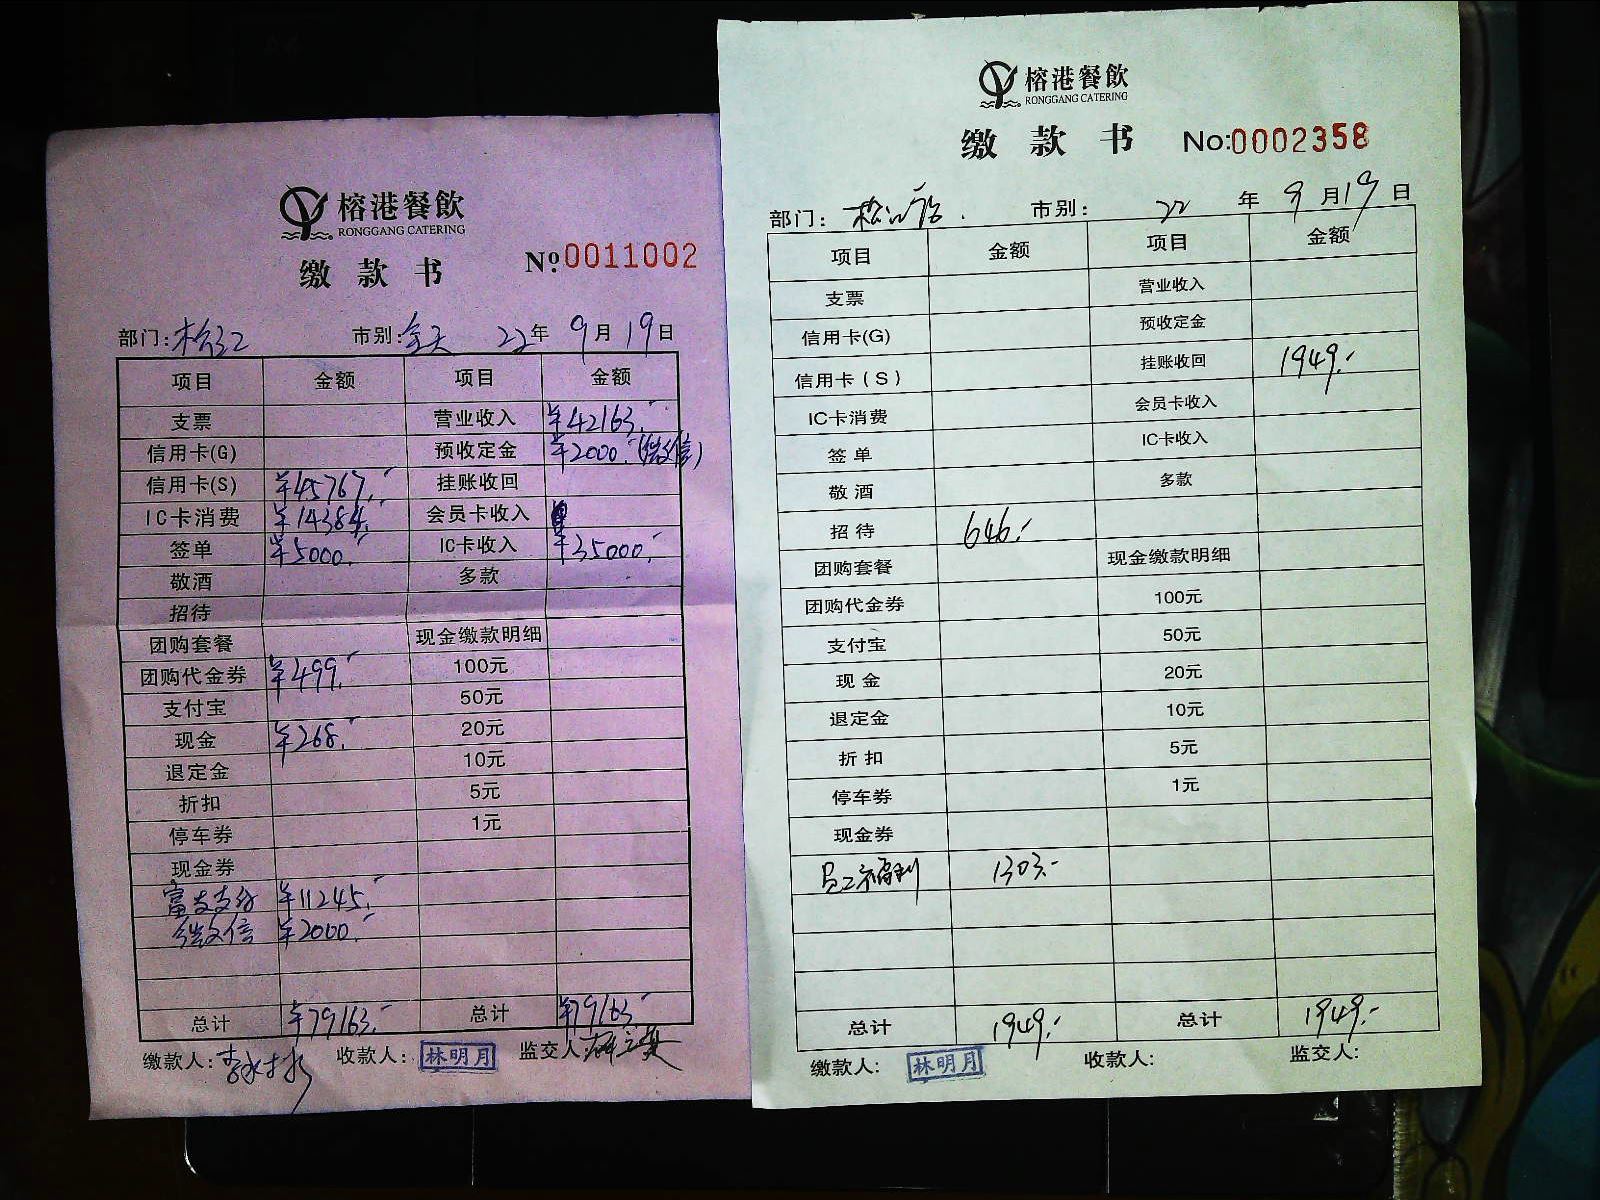 榕港餐飲
RONGGANG CATERING
缴款书 №0011002
部门:松江 市别:全天 22年 9月 19日
项目 金额 项目 金额
支票 营业收入 ¥42163.-
信用卡(G) 预收定金 ¥2000.-(微信)
信用卡(S) ¥45767.- 挂账收回
IC卡消费 ¥14384.- 会员卡收入
签单 ¥5000.- IC卡收入 ¥35000.-
敬酒 多款
招待
团购套餐 现金缴款明细
团购代金券 ¥499.- 100元
支付宝 50元
现金 ¥268.- 20元
退定金 10元
折扣 5元
停车券 1元
现金券
富友支付 ¥11245.-
微信 ¥2000.-
总计 ¥79163.- 总计 ¥79163.-
缴款人: 收款人: 林明月 监交人:
榕港餐飲
RONGGANG CATERING
缴款书 No:0002358
部门: 松江店. 市别: 22 年 9 月 19 日
项目 金额 项目 金额
支票 营业收入
信用卡(G) 预收定金
信用卡(S) 挂账收回 1949.-
IC卡消费 会员卡收入
签单 IC卡收入
敬酒 多款
招待 646.-
团购套餐 现金缴款明细
团购代金券 100元
支付宝 50元
现金 20元
退定金 10元
折扣 5元
停车券 1元
现金券
员工福利 1303.-
总计 1949.- 总计 1949.-
缴款人: 林明月 收款人: 监交人: